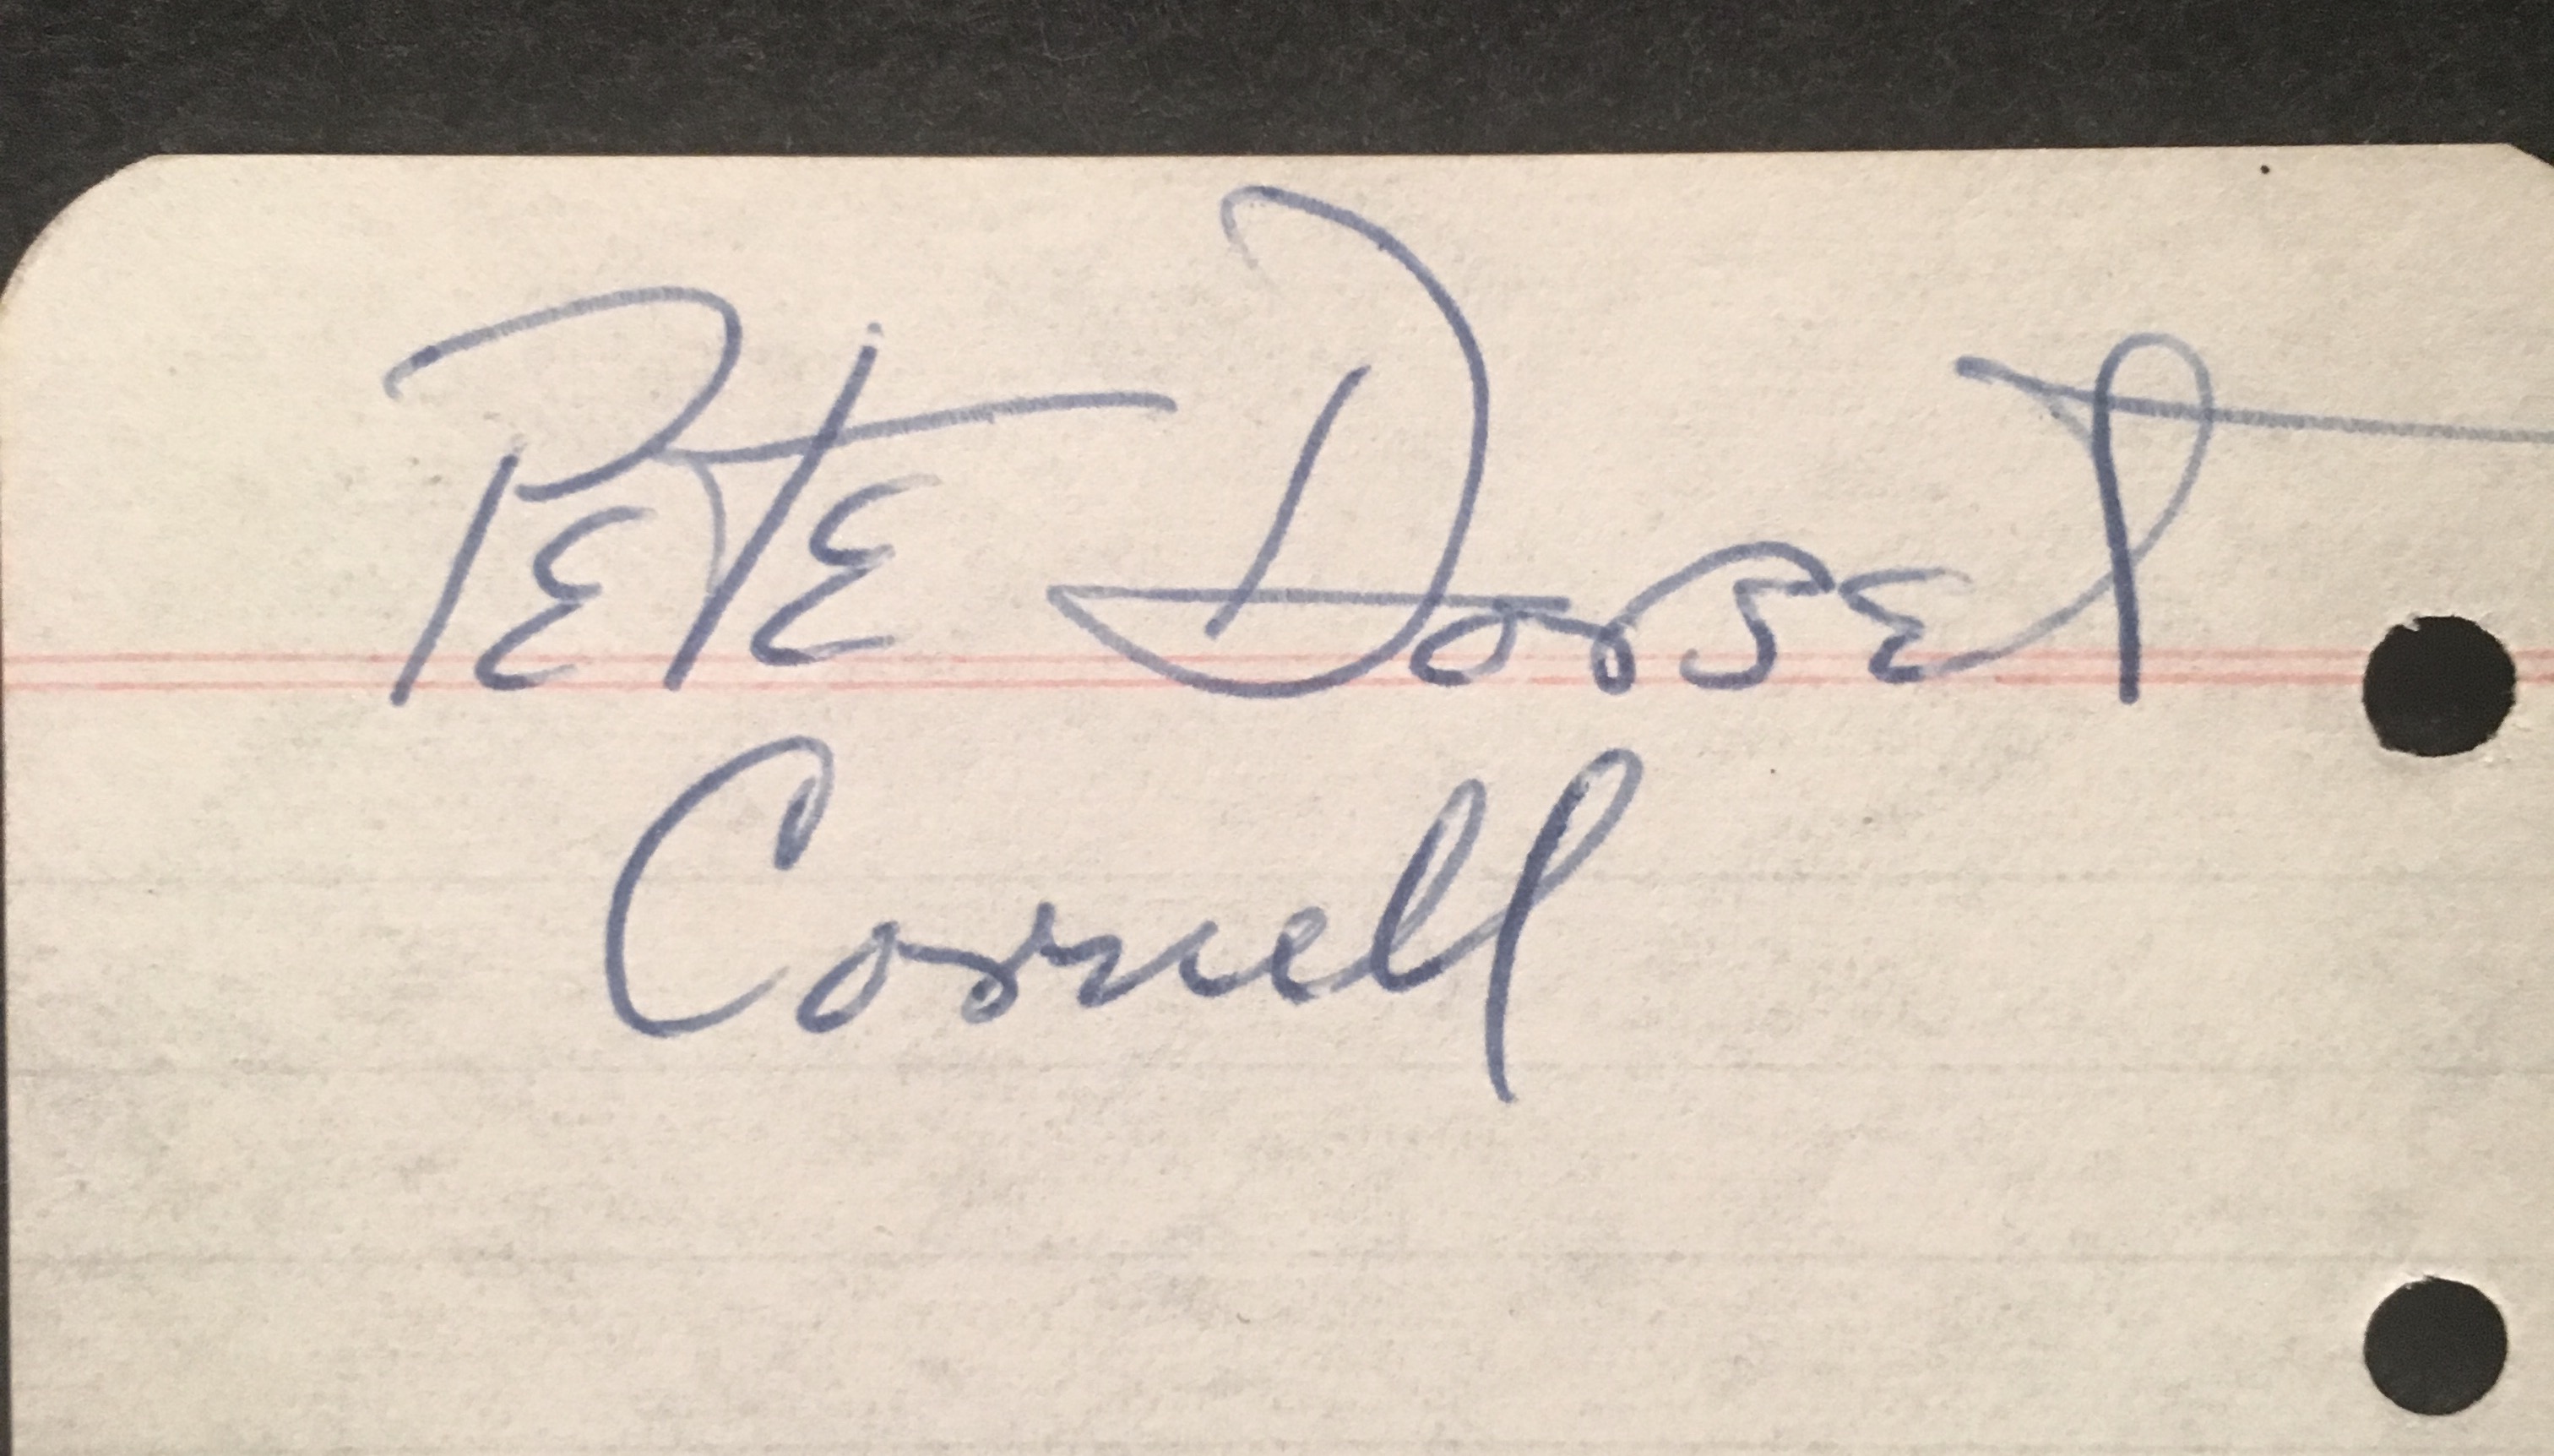 Pete Dorset
Cornell